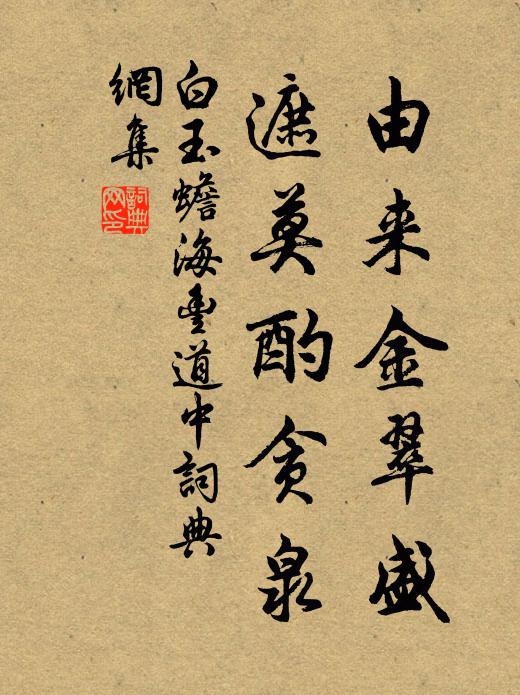 由来金翠盛
遮莫酌贪泉
白玉蟾海豐道中詞典
網集
詞典
网印